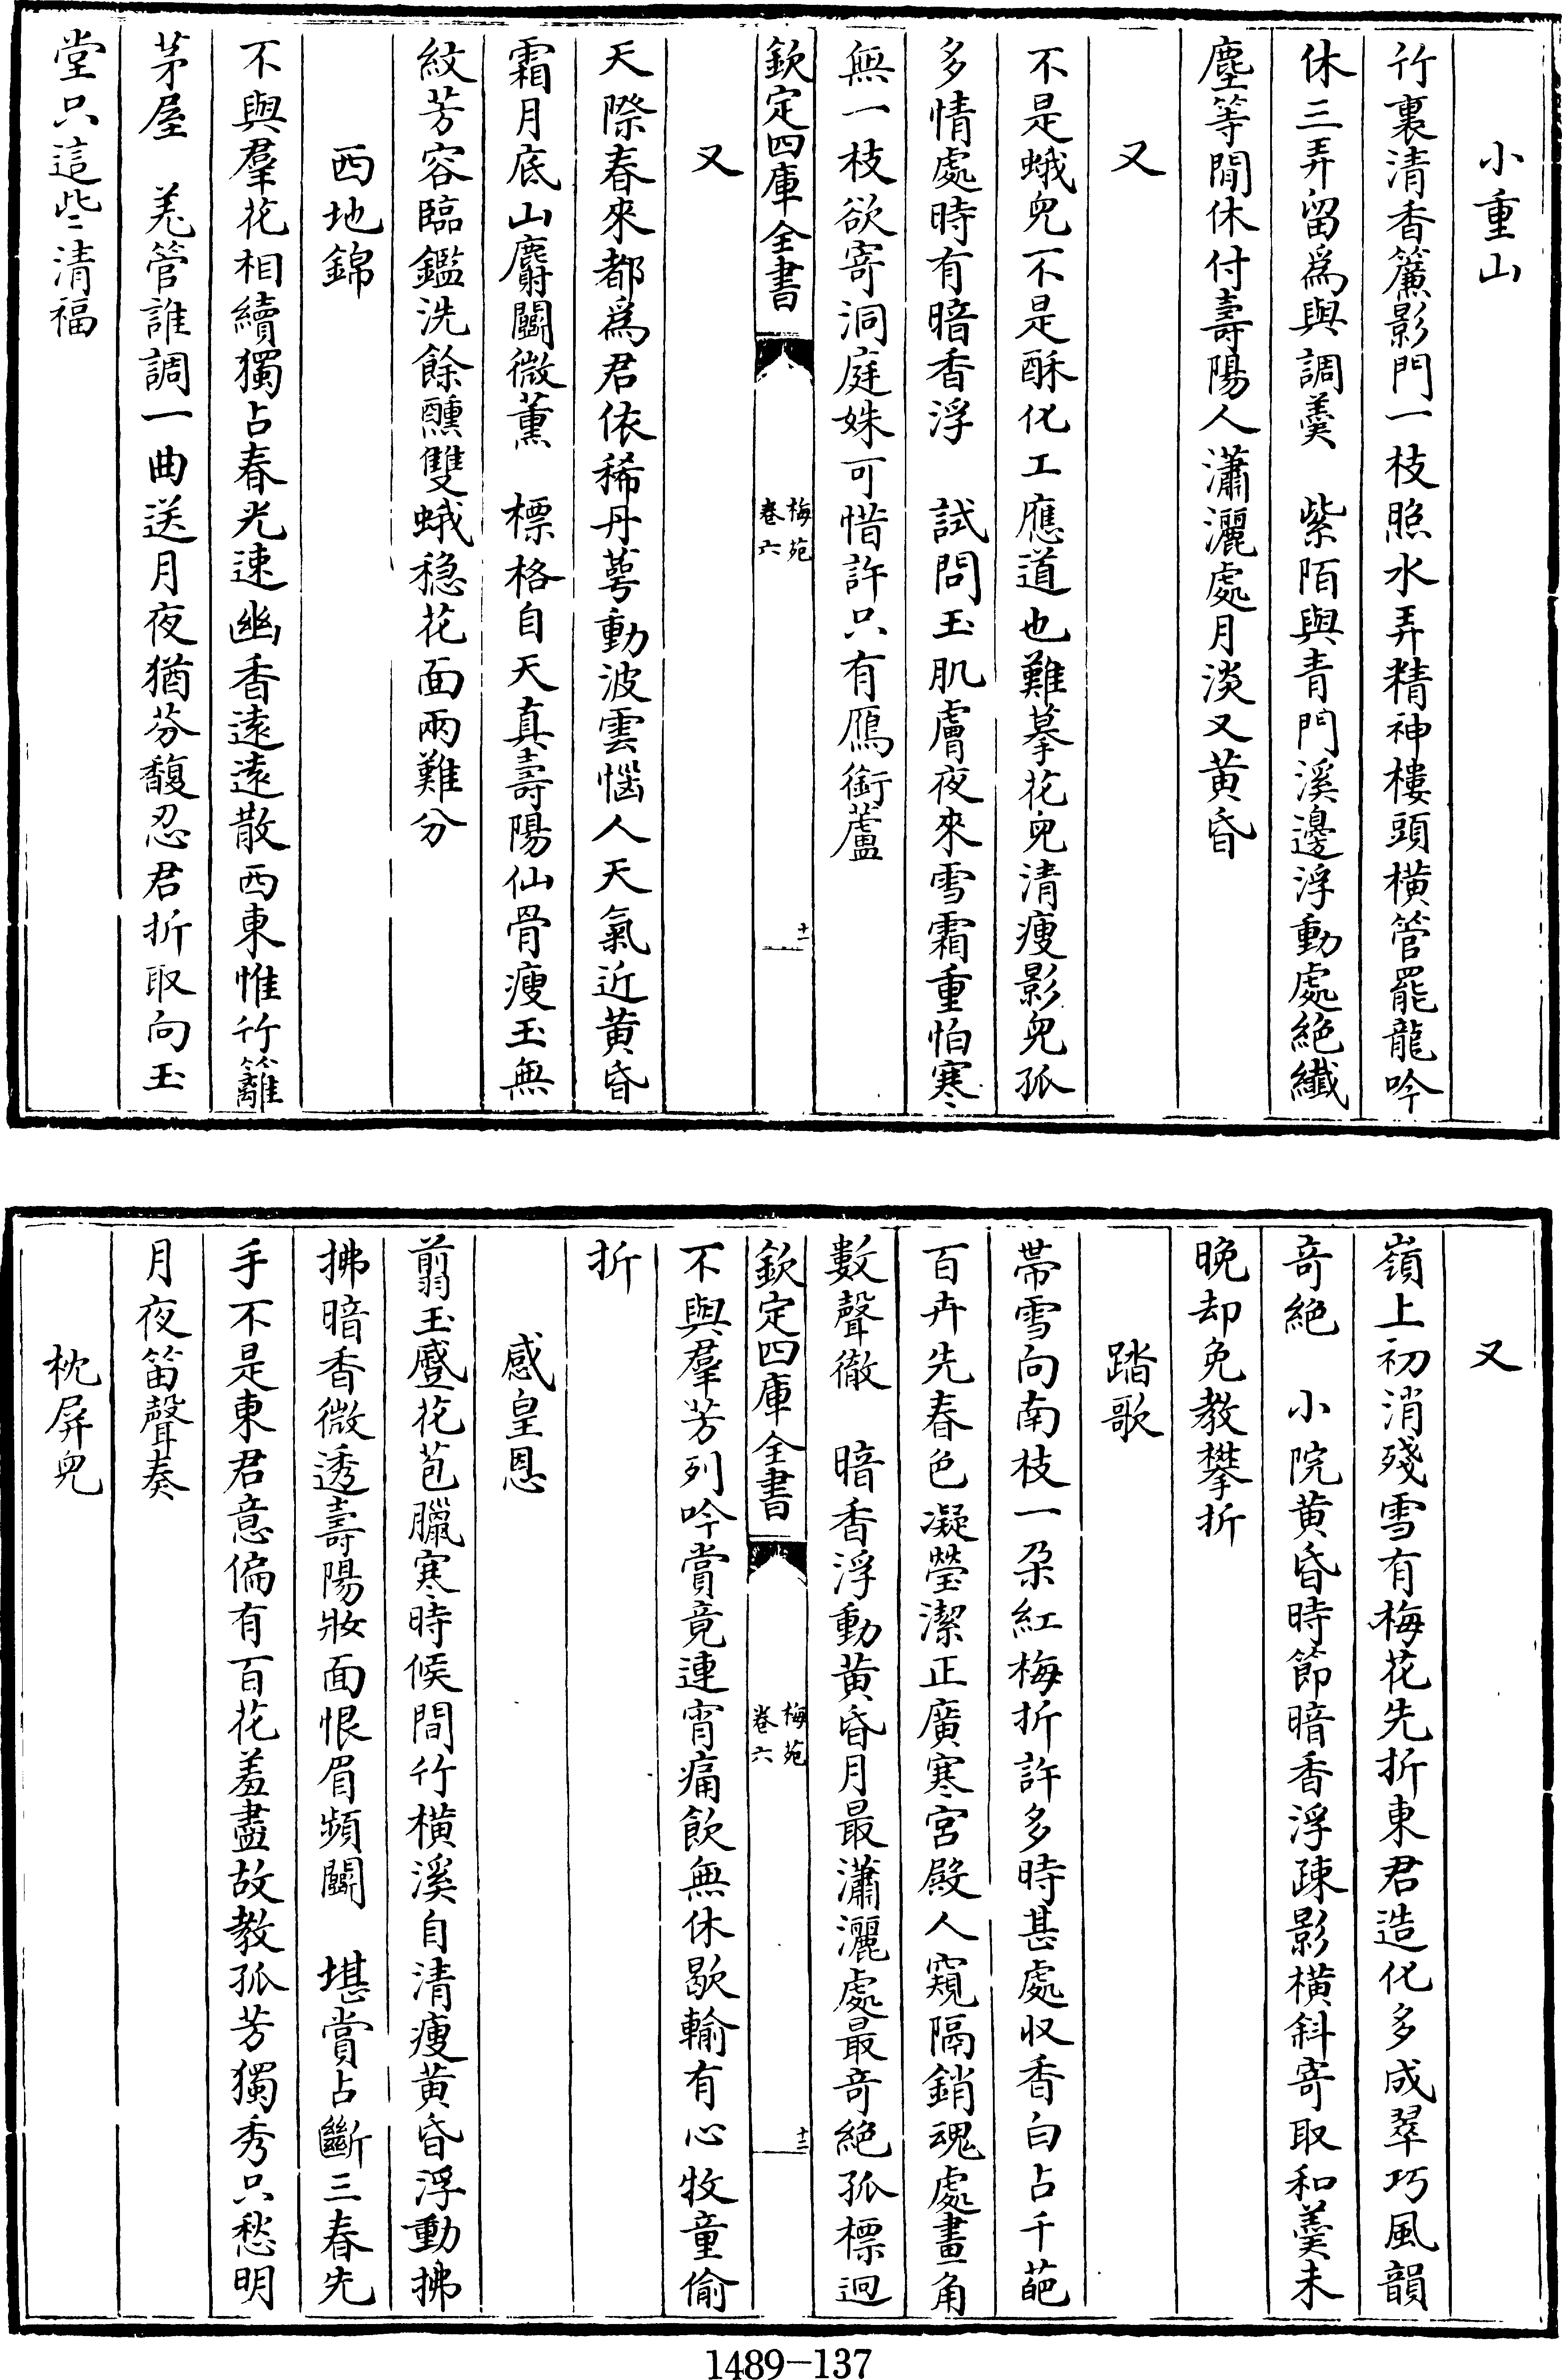 小重山
竹裏清香簾影門一枝照水弄精神樓頭橫管罷龍吟
休三弄留爲與調羹　紫陌與青門溪邊浮動處絶纖
塵等閒休付壽陽人瀟灑處月淡又黄昏
又
不是蛾兒不是酥化工應道也難摹花兒清瘦影兒孤
多情處時有暗香浮　試問玉肌膚夜來雪霜重怕寒
無一枝欲寄洞庭姝可惜許只有鴈銜蘆
欽定四庫全書
梅苑
卷六
十一
又
天際春來都爲君依稀丹萼動波雲惱人天氣近黄昏
霜月底山麝鬭微薰　標格自天真壽陽仙骨瘦玉無
紋芳容臨鑑洗餘醺雙蛾稳花面兩難分
西地錦
不與羣花相續獨占春光速幽香遠遠散西東惟竹籬
茅屋　羌管誰調一曲送月夜猶芬馥忍君折取向玉
堂只這些清福
又
嶺上初消殘雪有梅花先折東君造化多成翠巧風韻
奇絶　小院黄昏時節暗香浮疎影橫斜寄取和羹未
晚却免教攀折
踏歌
帶雪向南枝一朶紅梅折許多時甚處収香白占千葩
百卉先春色凝瑩潔正廣寒宮殿人窺隔銷魂處畫角
數聲徹　暗香浮動黄昏月最瀟灑處最奇絶孤標迥
欽定四庫全書
梅苑
卷六
十二
不與羣芳列吟賞竟連宵痛飲無休歇輸有心牧童偷
折
感皇恩
翦玉蹙花苞臘寒時候間竹橫溪自清瘦黄昏浮動拂
拂暗香微透壽陽妝面恨眉頻鬭　堪賞占斷三春先
手不是東君意偏有百花羞盡故教孤芳獨秀只愁明
月夜笛聲奏
枕屏兒
1489-137